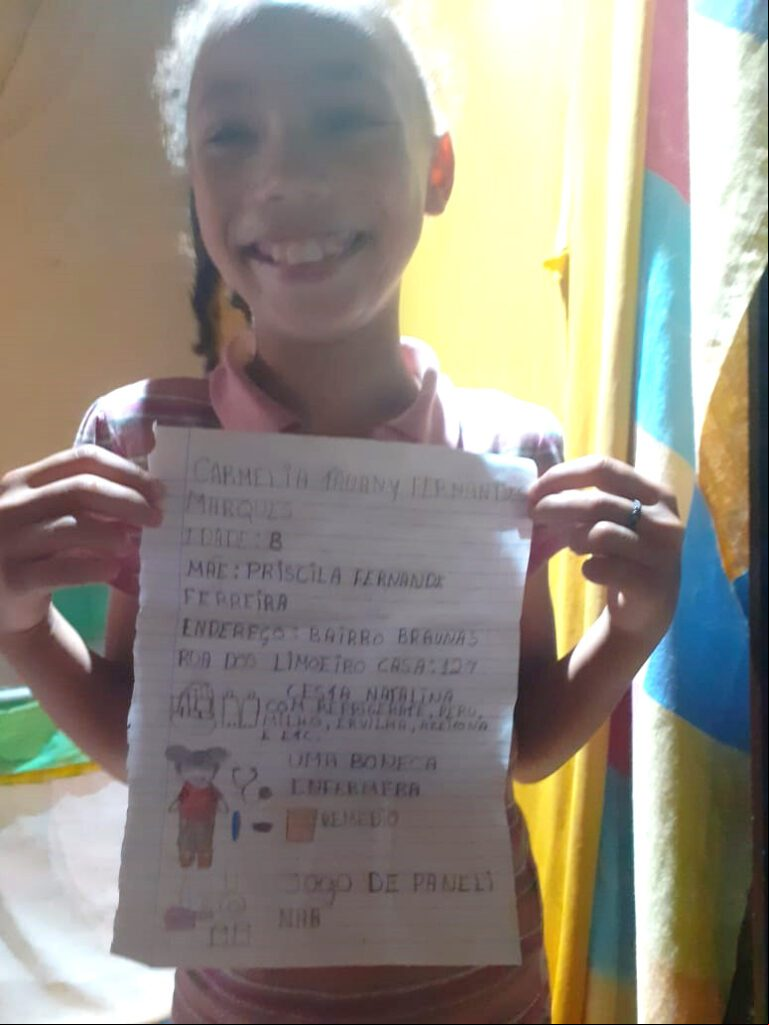 CARMELIA TAUANY FERNANDES
MARQUES
IDADE: 8
MÃE: PRISCILA FERNANDE
FERREIRA
ENDEREÇO: BAIRRO BRAUNAS
RUA DOS LIMOEIRO CASA: 127
CESTA NATALINA
COM REFRIGERATE, PERU,
MILHO, ERVILHA, AZEITONA
E ETC.
UMA BONECA
ENFERMERA
REMEDIO
JOGO DE PANELI
NHA